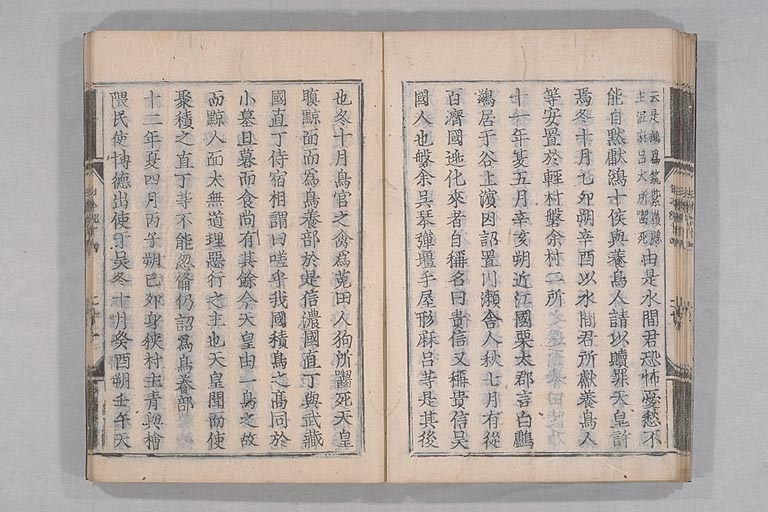 云是鵝爲筑紫嶺縣
主泥麻呂犬所囓死
由是水間君恐怖憂愁不
能自黙獻鴻十侯與養鳥人請以贖罪天皇許
焉冬十月乙夘朔辛酉以水間君所獻養鳥人
等安置於輕村磐余村二所
十一年夏五月辛亥朔近江國栗太郡言白鸕
鷀居于谷上濱因詔置川瀬舎人秋七月有從
百濟國逃化來者自稱名曰貴信又稱貴信吴
國人也磐余吴琴彈壃手屋形麻吕等是其後
也冬十月鳥官之禽爲菟田人狗所囓死天皇
瞋黥面而爲鳥養部於是信濃國直丁與武藏
國直丁侍宿相謂曰嗟乎我國積鳥之髙同於
小墓旦暮而食尚有其餘今天皇由一鳥之故
而黥人面太無道理惡行之主也天皇聞而使
聚積之直丁等不能忽備仍詔爲鳥養部
十二年夏四月丙子朔己夘身狹村主青與檜
隈民使博德出使于吴冬十月癸酉朔壬午天